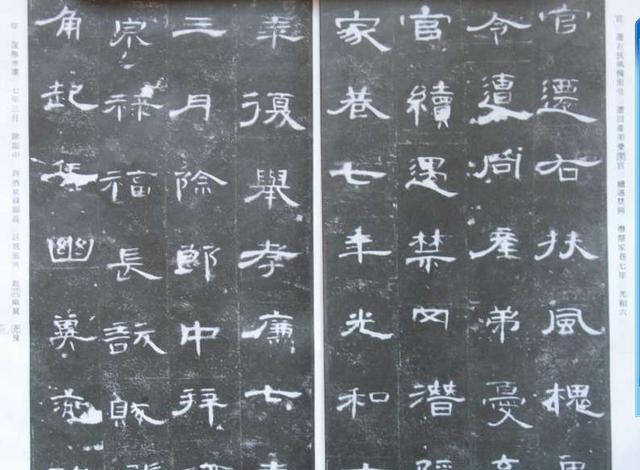 官 遷右扶風槐里令 遭同產弟憂棄官 續遇禁网 潛隱家巷七年 光和六
官遷右扶風槐里
令遭同產弟憂棄
官續遇禁网潛隱
家巷七年光和六
年復舉孝廉七年
三月除郎中拜酒
泉祿福長訞賊張
角起兵幽冀兗豫
年 復舉孝廉 七年三月 除郎中 拜酒泉祿福長 訞賊張角 起兵幽冀 兗豫